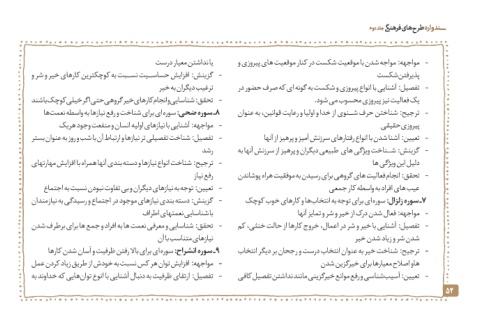 ســند وارد طرح‌های فرهنگی جلد دوم
- مواجهه: مواجه شدن با موقعیت شکست در کنار موقعیت های پیروزی و
پذیرفتن شکست
- تفصیل: آشنایی با انواع پیروزی و شکست به گونه ای که صرف حضور در
یک فعالیت نیز پیروزی محسوب می شود.
- ترجیح: شناختن حرف شــنوی از خدا و اولیا و رعایت قوانین، به عنوان
پیروزی حقیقی
- تعیین: آشنا شدن با انواع رفتارهای سرزنش آمیز و پرهیز از آنها
- گزینش: شــناخت ویژگی های طبیعی دیگران و پرهیز از سرزنش آنها به
دلیل این ویژگی ها
- تحقق: انجام فعالیت های گروهی برای رسیدن به موفقیت همراه پوشاندن
عیب های افراد به واسطه کار جمعی
۷ـ سوره زلزال: سوره ای برای توجه به انتخاب‌ها و کارهای خوب کوچک
- مواجهه: فعال شدن درک از خیر و شر و تمایز آنها
- تفصیل: آشنایی با خیر و شر در اعمال، خروج کارها از حالت خنثی، کم
شدن شر و زیاد شدن خیر
- ترجیح: شناخت خیر به عنوان انتخاب درست و رجحان بر دیگر انتخاب
ها و اصلاح معیارها برای خیرگزین شدن
- تعیین: آسیب‌شناسی و رفع موانع خیرگزینی مانند نداشتن تفصیل کافی
یا نداشتن معیار درست
- گزینش: افزایش حساسـیت نسـبت به کوچکترین کارهای خیر و شر و
ترغیب دیگران به خیر
- تحقق: شناسایی و انجام کارهای خیر گروهی حتی اگر خیلی کوچک باشند
۸ـ سوره ضحی: سوره ای برای شناخت و رفع نیازها به واسطه نعمت‌ها
- مواجهه: آشنایی با نیازهای اولیه انسان و منفعت وجود هر یک
- تفصیل: شناخت تفصیلی تر نیازها و ارتباط آن با شب و روز به عنوان بستر
رشد
- ترجیح: شناخت انواع نیازها و دسته بندی آنها همراه با افزایش مهارتهای
رفع نیاز
- تعیین: توجه به نیازهای دیگران و بی تفاوت نبودن نسبت به اجتماع
- گزینش: دسته بندی نیازهای موجود در اجتماع و رسیدگی به نیازمندان
با شناسایی نعمتهای اطراف
- تحقق: شناسایی و معرفی نعمت ها به افراد و جمع ها برای برطرف شدن
نیازهای متناسب با آن
۹ـ سوره انشراح: سوره ای برای بالا رفتن ظرفیت و آسان شدن کارها
- مواجهه: افزایش توان هر کس نسبت به خودش از طریق زیاد کردن عمل
- تفصیل: ارتقای ظرفیت به دنبال آشنایی با انوع توان‌هایی که خداوند به
۵۲